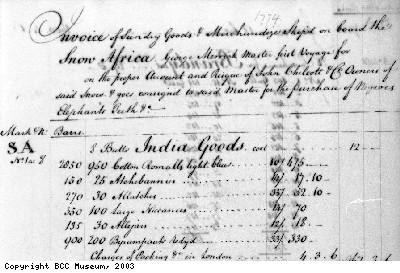 1774
Invoice of Sundry Goods & Merchandize Ship'd on board the
Snow Africa George Merrick Master first Voyage for
on the proper Account and Risque of John Chilcott & Co Owners of
said Snow & goes consigned to said Master for the purchase of Negroes
Elephants Teeth &c
Mark No Bars
8 Bales India Goods cost 12
SA
No 1 a 8
2850 950 Cotton Romalls light blue 10/ 475
150 25 17.10
270 30 32.10
350 100 Large Niccanees 14/ 70
135 30 12/ 18
900 200 33/ 330
Charges of Packing &c in London 4.3.6
Copyright BCC Museums, 2003